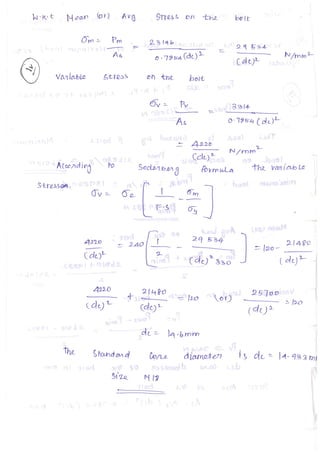 W.K.t Mean (or) Avg Stress on the bolt
σm = Pm / As = 23146 / 0.7854 (dc)² = 29 534 / (dc)² N/mm²
Variable stress on the bolt
σv = Pv / As = 3314 / 0.7854 (dc)²
= 4220 / (dc)² N/mm²
According to Soderberg formula the variable
stresses,
σv = σe [ 1 / F.S - σm / σy ]
4220 / (dc)² = 240 [ 1 / 2 - 29 534 / (dc)² 330 ] = 120 - 21480 / (dc)²
4220 / (dc)² + 21480 / (dc)² = 120 (or) 25700 / (dc)² = 120
dc = 14.6mm
The Standard Core diameter is dc = 14.933 m
Size M18